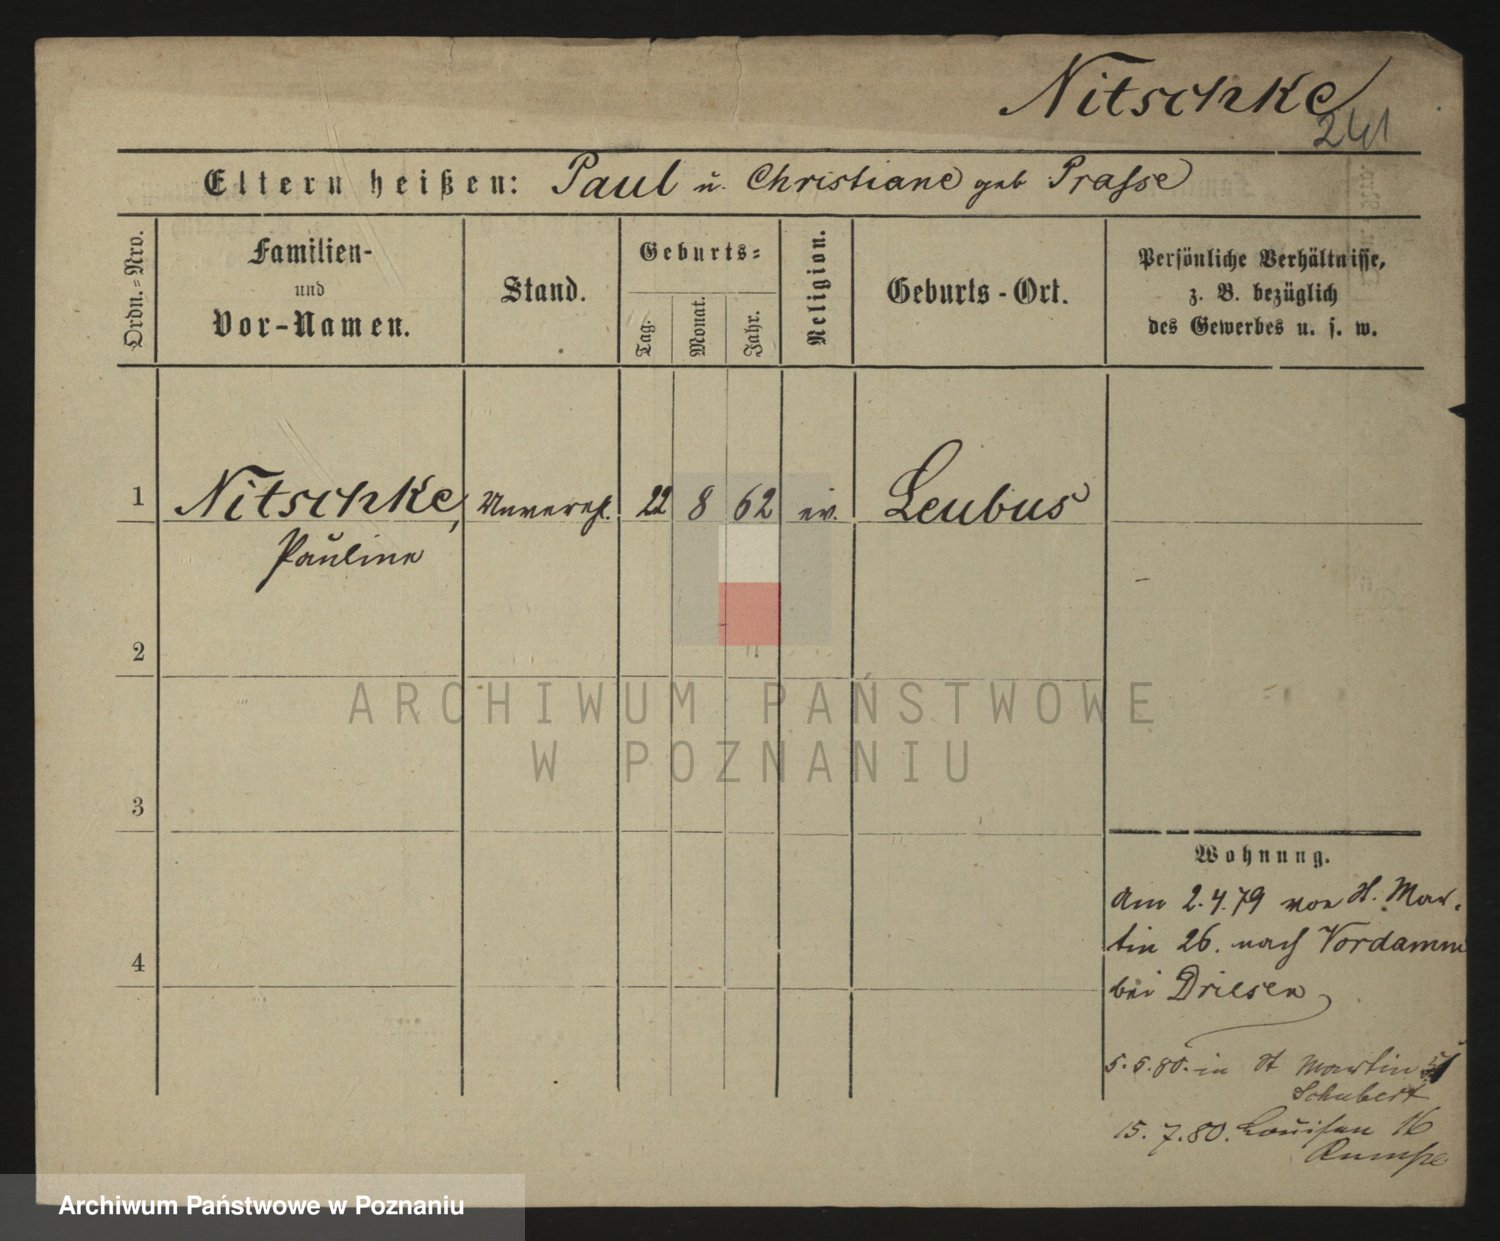 Nitschke
241
Eltern heißen: Paul u. Christiane geb Prasse
Ordn.=Nro.
Familien-
und
Vor-Namen.
Stand.
Geburts=
Tag.
Monat.
Jahr.
Religion.
Geburts-Ort.
Persönliche Verhältnisse,
z. B. bezüglich
des Gewerbes u. s. w.
1 Nitschke, Unvereh. 22 8 62 ev. Leubus
Pauline
2
ARCHIWUM PAŃSTWOWE
W POZNANIU
3
4
Wohnung.
Am 2.4.79 von St. Mar-
tin 26. nach Vordamm
bei Driesen
5.5.80. in St Martin
Schubert
15.7.80. Louisen 16
Rumpe
Archiwum Państwowe w Poznaniu